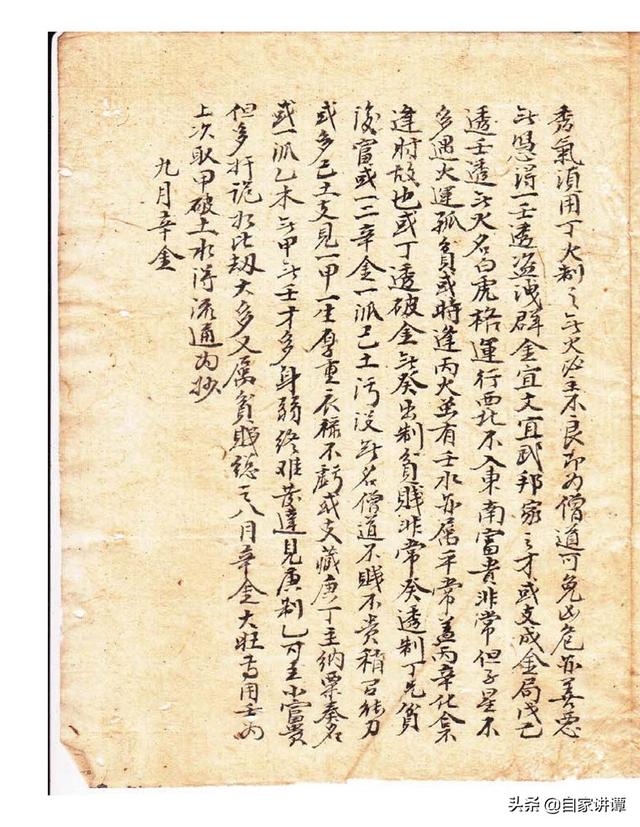 秀氣須用丁火制之無火必主不良即為僧道可免凶危亦善惡
無愚得一壬透盗洩群金宜文宜武邦家之才或支成金局戊己
透壬透無火名白虎格運行西北不入東南富貴非常但子星不
多遇火運孤貧或時逢丙火並有壬水亦属平常盖丙辛化合不
逢时故也或丁透破金無癸出制貧賎非常癸透制丁先貧
後富或一二辛金一派己土污沒無名僧道不賎不贵稍召能刀
或多己土支見一甲一生厚重衣禄不虧或支藏庚丁主納粟奏名
或一派乙木無甲無壬才多身弱终难發達見庚制乙可主小富貴
但多奸詭水比劫大多又属貧賎總之八月辛金大旺专用壬为
上次取甲破土水得流通为妙
九月辛金
头条 @自家讲谭